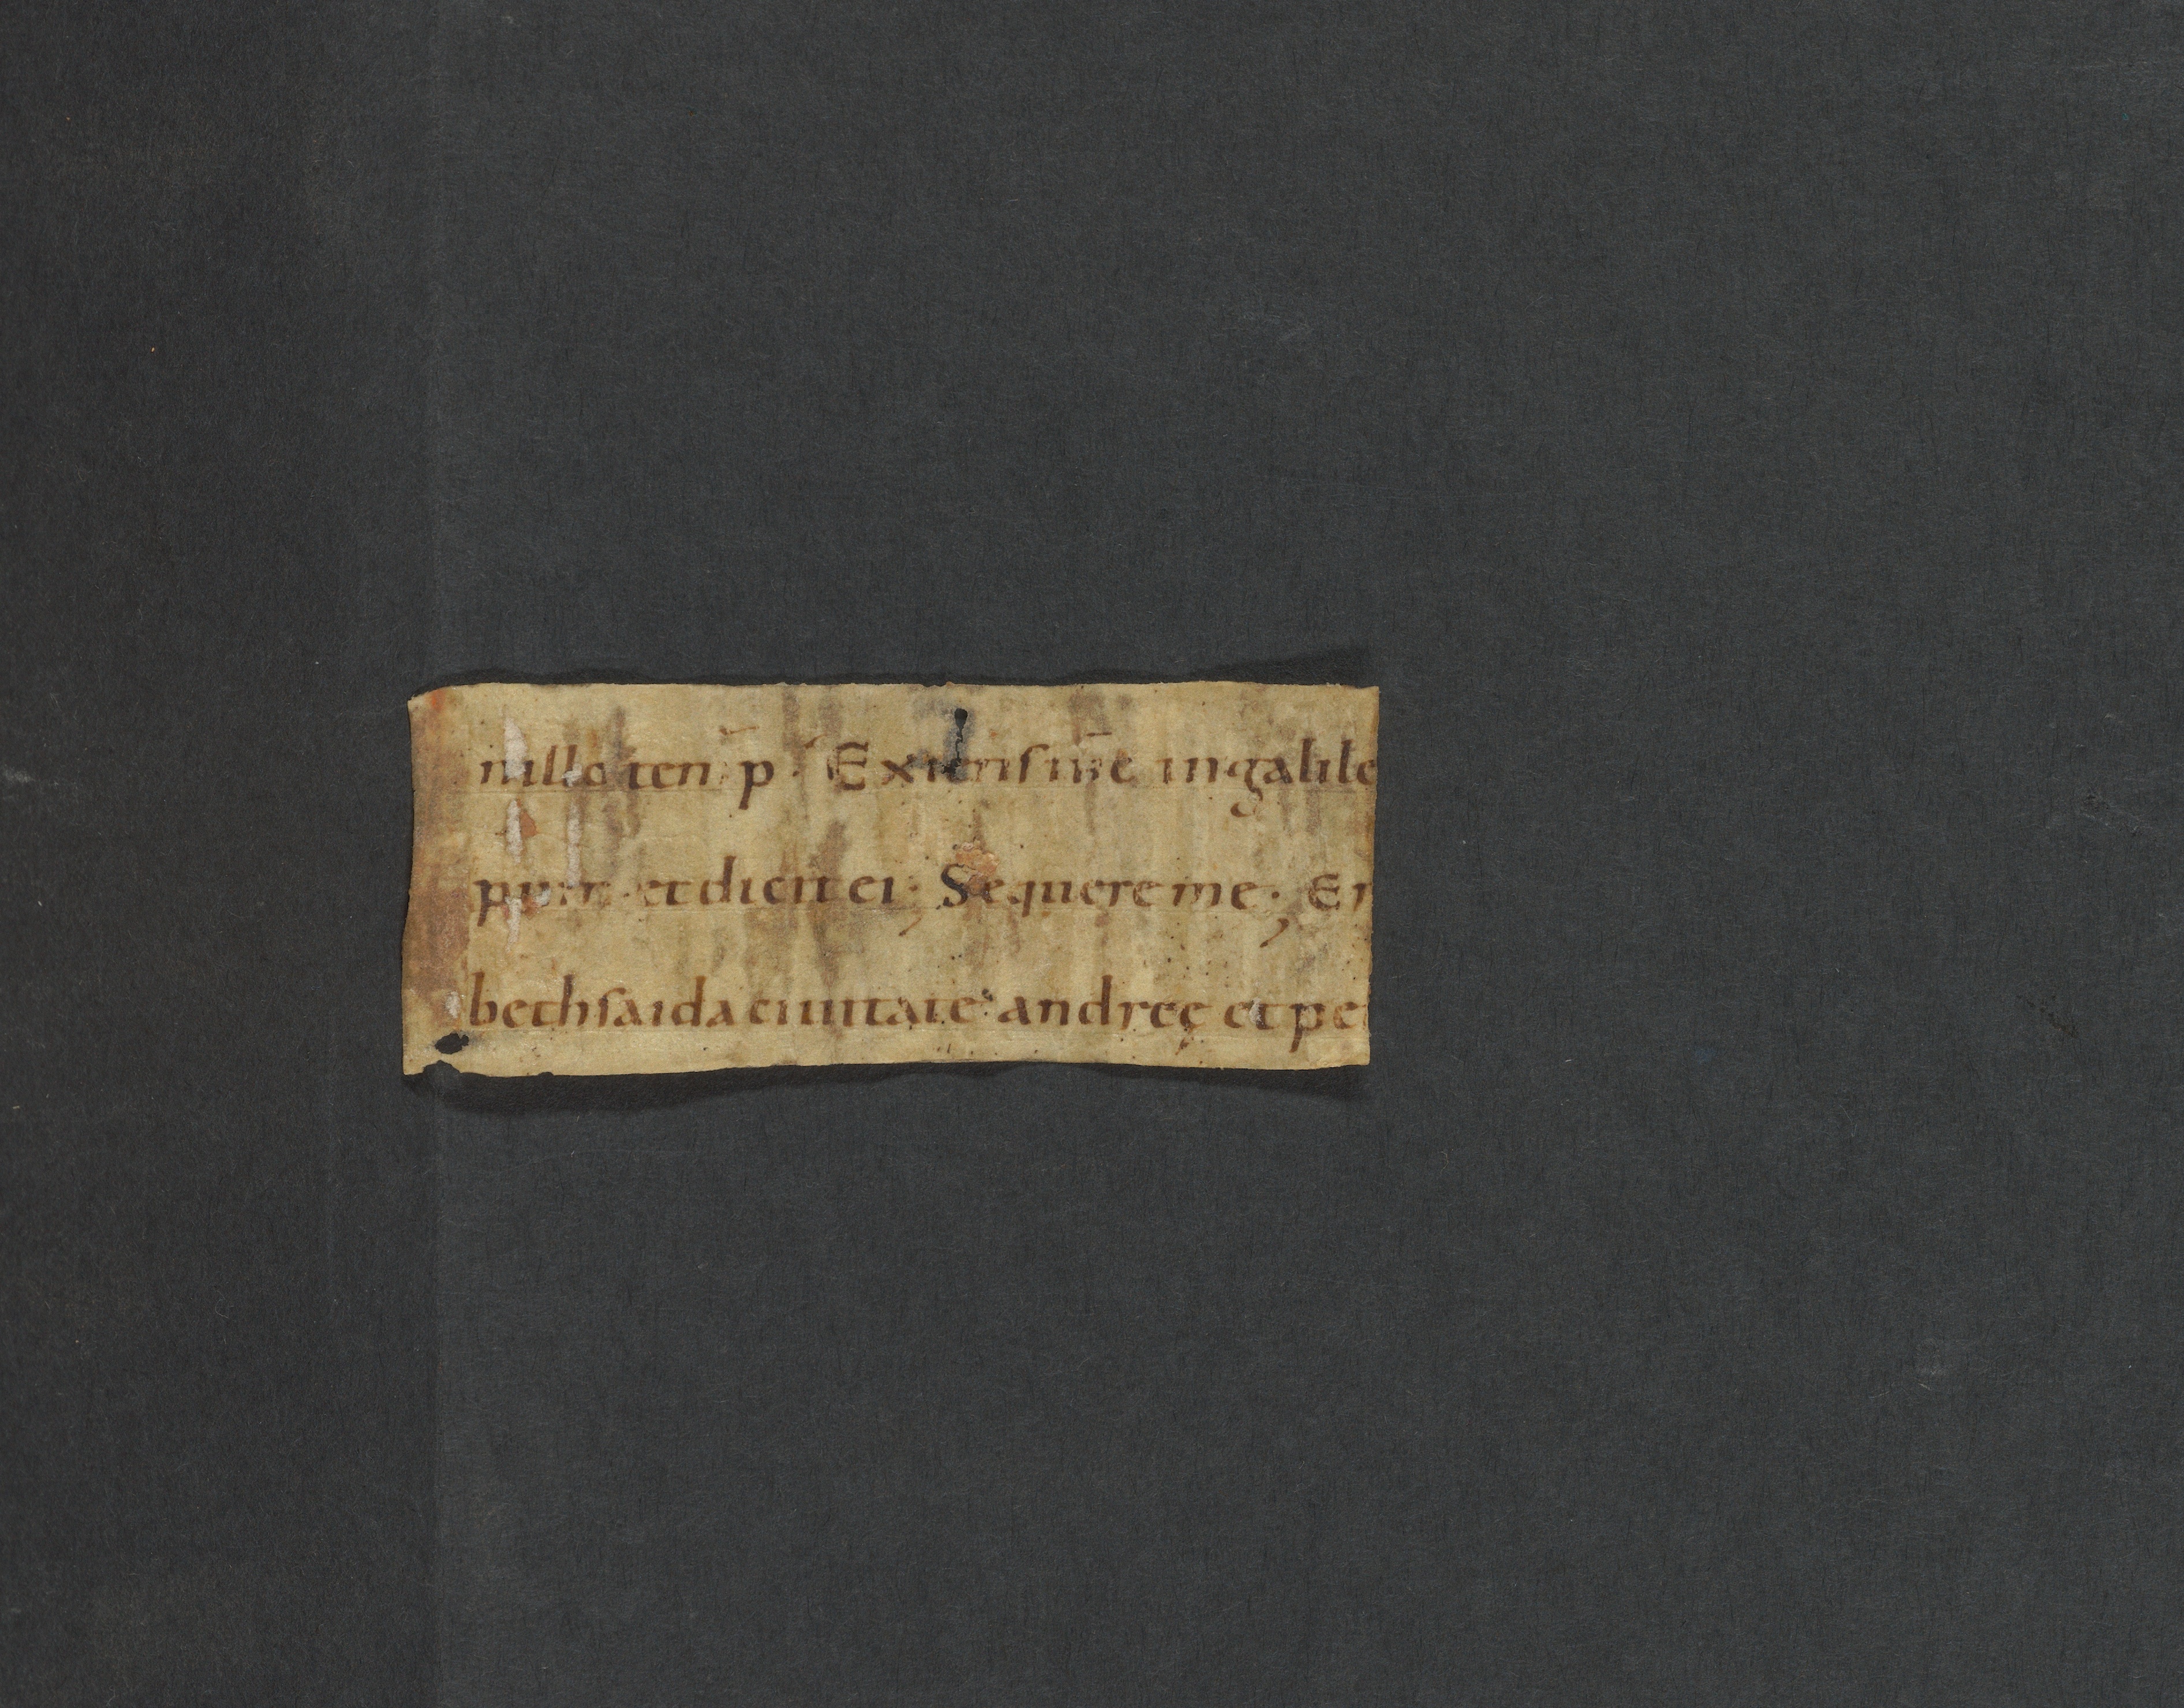 inillo tem p· Exiit ihs in galile
ppum et dicit ei; Sequere me; Er
bethsaida ciuitate andreę et pe